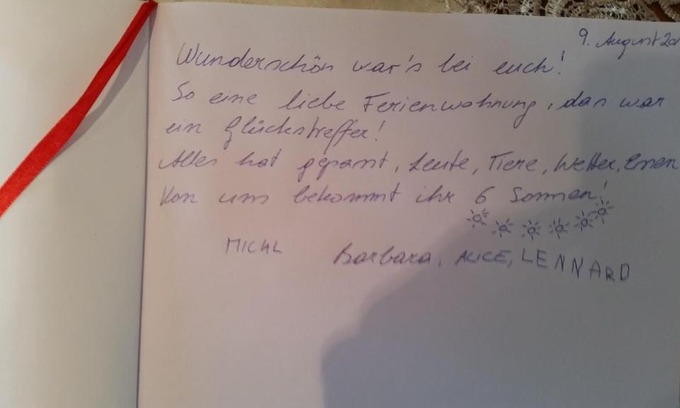 9. August 20
Wunderschön war's bei euch!
So eine liebe Ferienwohnung, das war
ein Glückstreffer!
Alles hat gepasst, Leute, Tiere, Wetter, Essen
Von uns bekommt ihr 6 Sonnen!
MICHL Barbara, ALICE, LENNARD